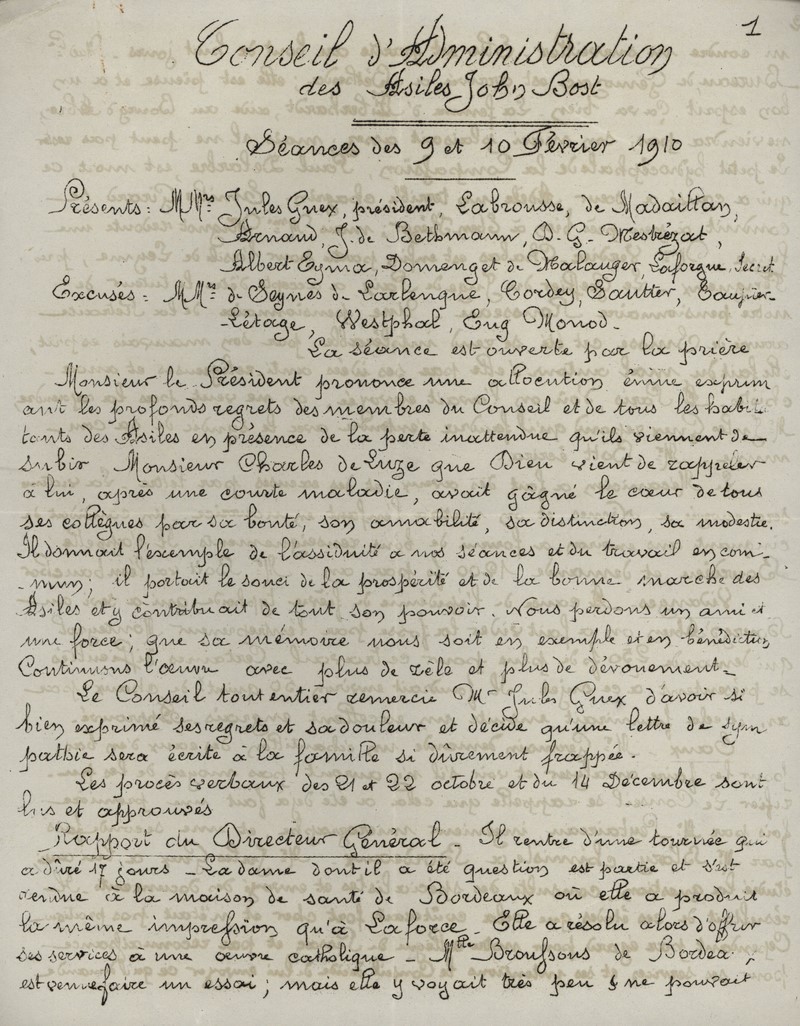 1
Conseil d'Administration
des Asiles John Bost
Séances des 9 et 10 Février 1910
Présents : MMrs Jules Guex, président, Labrousse, de Madaillan,
Arnaud, J. de Bethmann, D. G. Mestrézat,
Albert Eyma, Domenget de Malauger, Laforgue, Secret
Excusés : MMrs de Seynes de Larlenque, Cordey, Sautter, Saupier-
-Létage, Westphal, Eug Monod -
La séance est ouverte par la prière
Monsieur le Président prononce une allocution émue exprim
ant les profonds regrets des membres du Conseil et de tous les habi-
tants des Asiles en présence de la perte inattendue qu'ils viennent de
subir Monsieur Charles de Luze que Dieu vient de rappeler
à lui, après une courte maladie, avait gâgné le cœur de tous
ses collègues par sa bonté, son amabilité, sa distinction, sa modestie.
Il donnait l'exemple de l'assiduité à nos séances et du travail en com-
-mun; il portait le souci de la prospérité et de la bonne marche des
Asiles et y contribuait de tout son pouvoir. Nous perdons un ami et
une force; que sa mémoire nous soit en exemple et en bénédiction
Continuons l'œuvre avec plus de zèle et plus de dévouement -
Le Conseil tout entier remercie Mr Jules Guex d'avoir si
bien exprimé ses regrets et sa douleur et décide qu'une lettre de sym
pathie sera écrite à la famille si dûrement frappée.
Les procès verbaux des 21 et 22 octobre et du 14 Décembre sont
lus et approuvés
Rapport du Directeur Général - Il rentre d'une tournée qui
a duré 17 jours - La dame dont il a été question est partie et s'est
rendue à la maison de santé de Bordeaux où elle a produit
la même impression qu'à Laforce - Elle a résolu alors d'offrir
ses services à une œuvre catholique - Mlle Broussons de Bordea
est venue faire un essai; mais elle y voyait très peu & ne pouvait